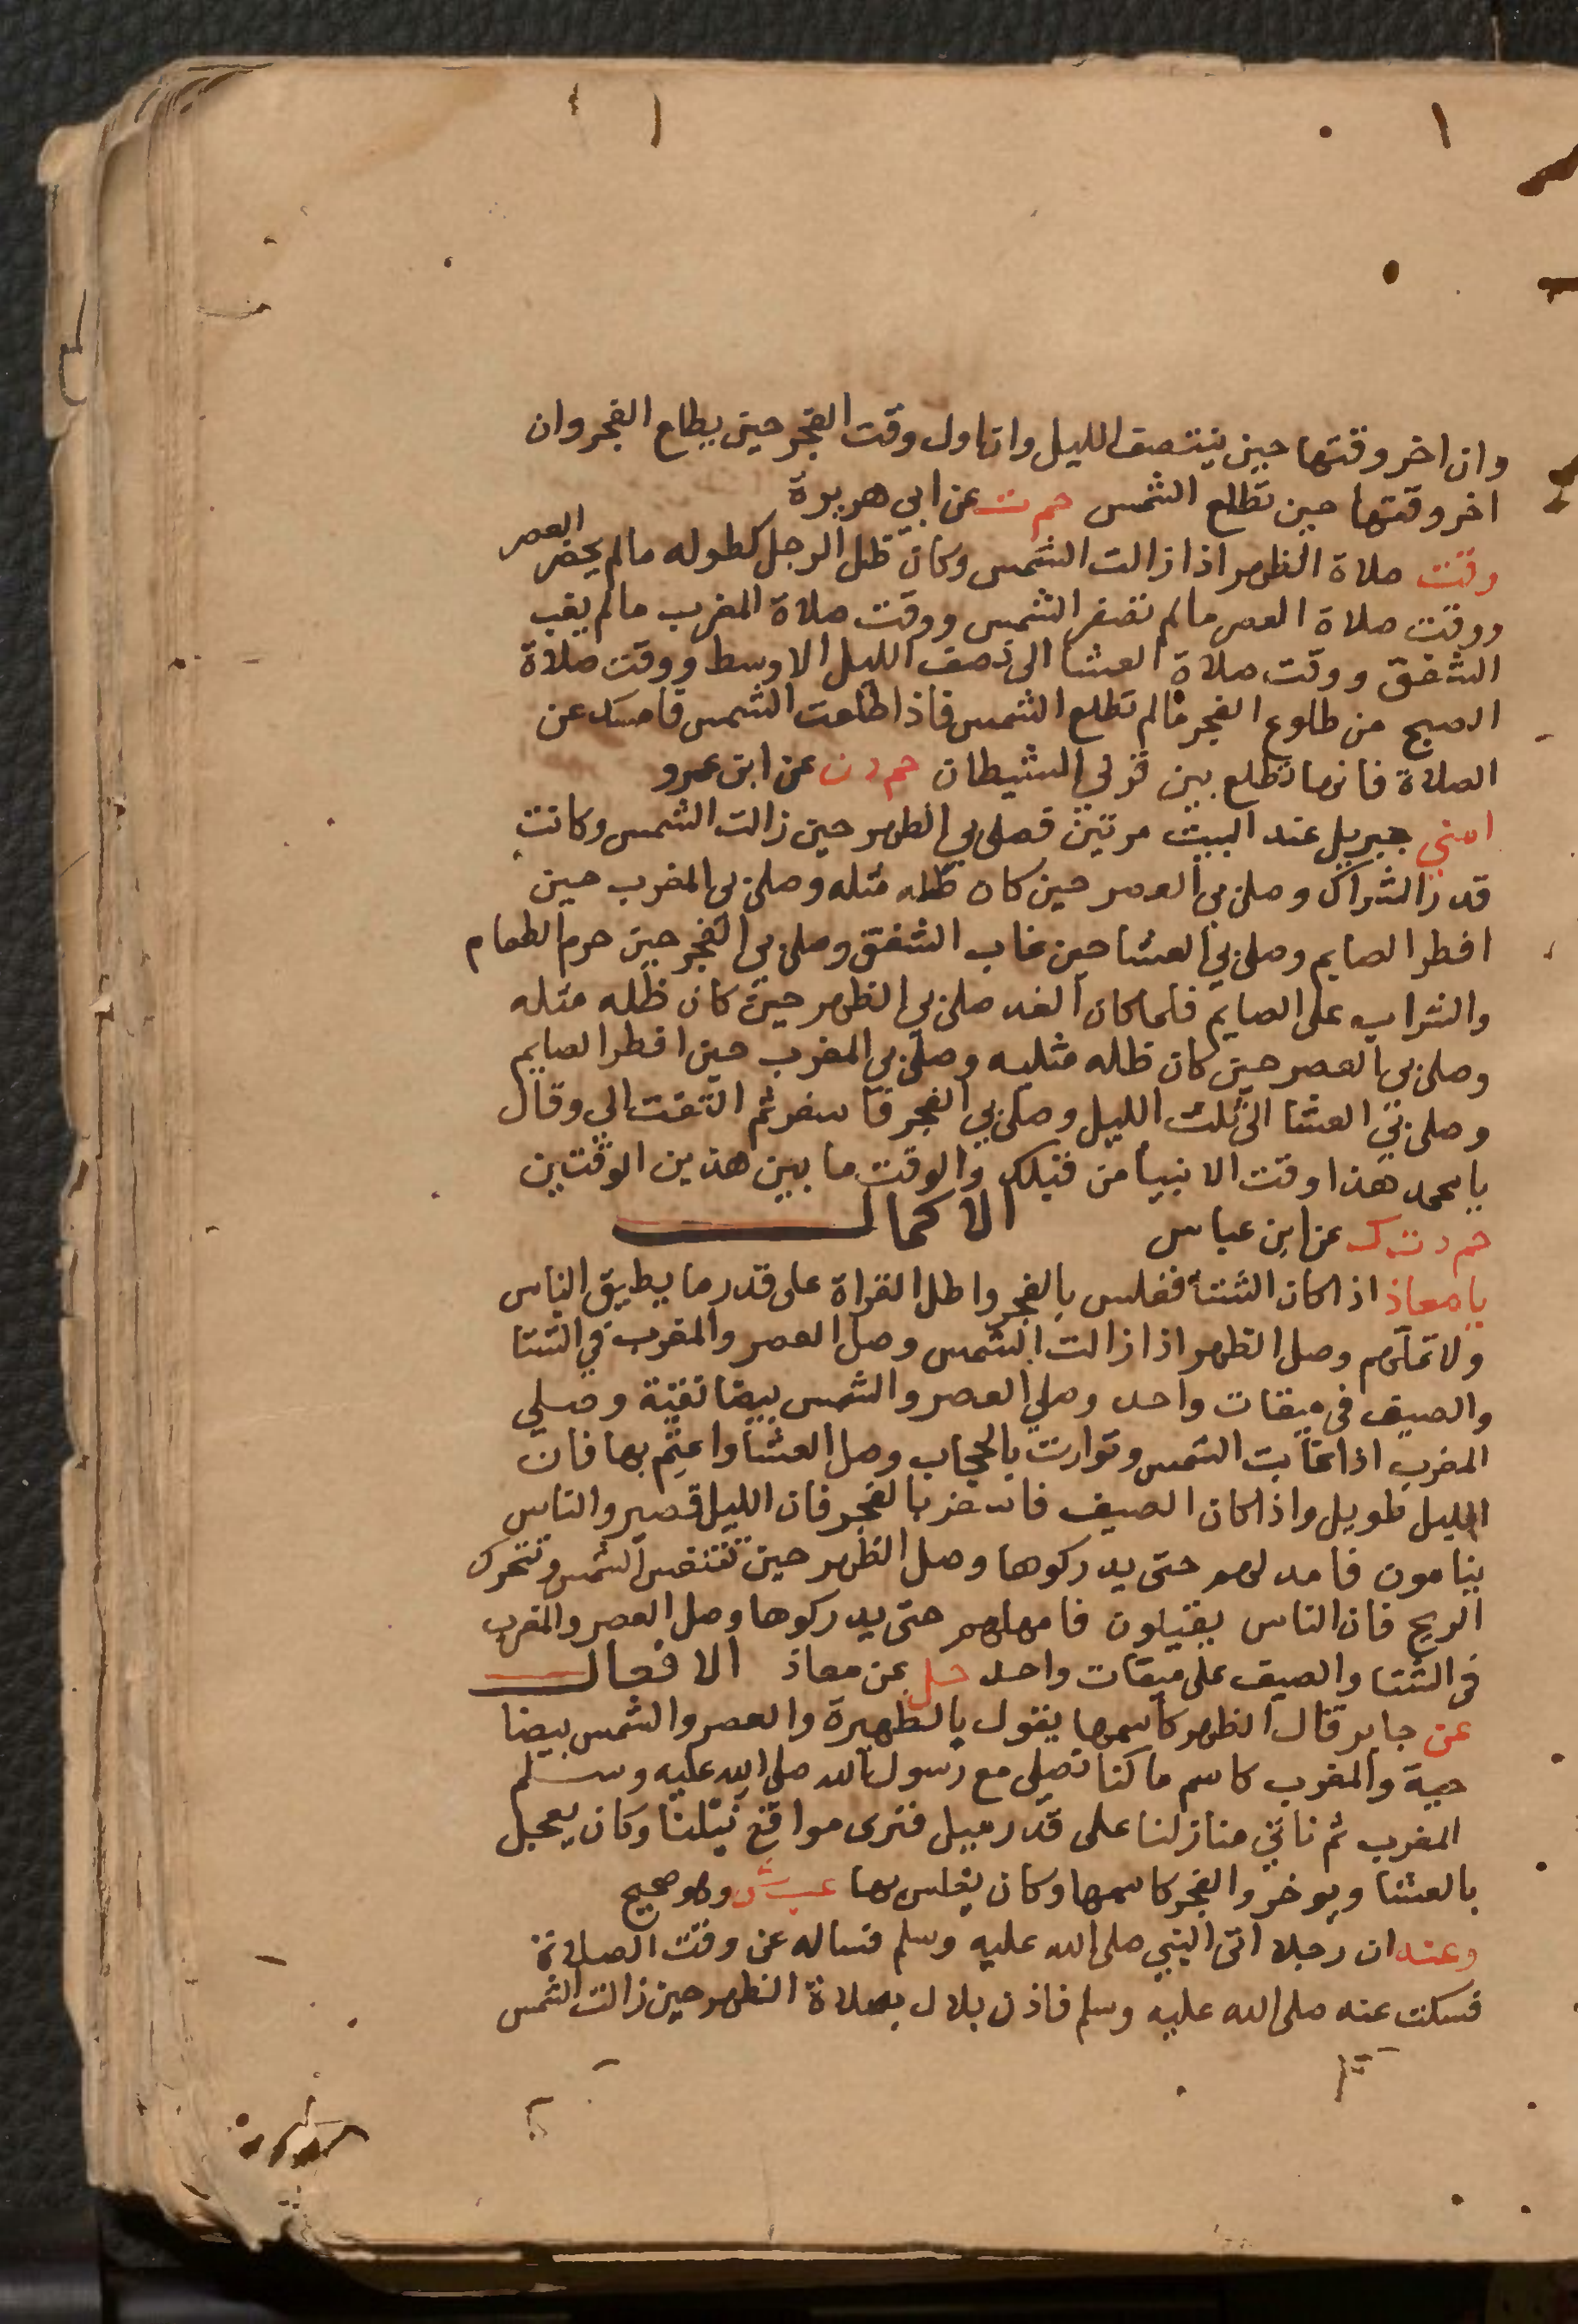 وان اخر وقتها حين ينتصف الليل وان اول وقت الفجر حين يطلع الفجر وان
اخر وقتها حين تطلع الشمس حم ت عن ابي هريرة
وقت صلاة الظهر اذا زالت الشمس وكان ظل الرجل كطوله مالم يحضر العصر
ووقت صلاة العصر مالم تصفر الشمس ووقت صلاة المغرب مالم يغب
الشفق ووقت صلاة العشا الى نصف الليل الاوسط ووقت صلاة
الصبح من طلوع الفجر مالم تطلع الشمس فاذا طلعت الشمس فامسك عن
الصلاة فانها تطلع بين قرني الشيطان حم د ن عن ابن عمرو
امني جبريل عند البيت مرتين فصلى بي الظهر حين زالت الشمس وكانت
قدر الشراك وصلى بي العصر حين كان ظله مثله وصلى بي المغرب حين
افطر الصايم وصلى بي العشا حين غاب الشفق وصلى بي الفجر حين حرم الطعام
والشراب على الصايم فلما كان الغد صلى بي الظهر حين كان ظله مثله
وصلى بي العصر حين كان ظله مثليه وصلى بي المغرب حين افطر الصايم
وصلى بي العشا الى ثلث الليل وصلى بي الفجر فاسفر ثم التفت الي وقال
يا محمد هذا وقت الانبيا من قبلك والوقت ما بين هذين الوقتين
حم د ت ك عن ابن عباس الاكمال
يا معاذ اذا كان الشتا فغلس بالفجر واطل القراة على قدر ما يطيق الناس
ولا تملهم وصل الظهر اذا زالت الشمس وصل العصر والمغرب في الشتا
والصيف في ميقات واحد وصلي العصر والشمس بيضا نقية وصلي
المغرب اذا غابت الشمس وتوارت بالحجاب وصل العشا واعتم بها فان
الليل طويل واذا كان الصيف فاسفر بالفجر فان الليل قصير والناس
ينامون فامد لهم حتى يدركوها وصل الظهر حين تتنفس الشمس وتتحرك
الريح فان الناس يقيلون فامهلهم حتى يدركوها وصل العصر والمغرب
في الشتا والصيف على ميقات واحد حل عن معاذ الافعال
عن جابر قال الظهر كاسمها يقول بالظهيرة والعصر والشمس بيضا
حية والمغرب كاسمها كنا نصلي مع رسول الله صلى الله عليه وسلم
المغرب ثم ناتي منازلنا على قدر ميل فنرى مواقع نبلنا وكان يعجل
بالعشا ويوخر والفجر كاسمها وكان يغلس بها عب ش وهو صحيح
وعنه ان رجلا اتى النبي صلى الله عليه وسلم فساله عن وقت الصلاة
فسكت عنه صلى الله عليه وسلم فاذن بلال بصلاة الظهر حين زالت الشمس